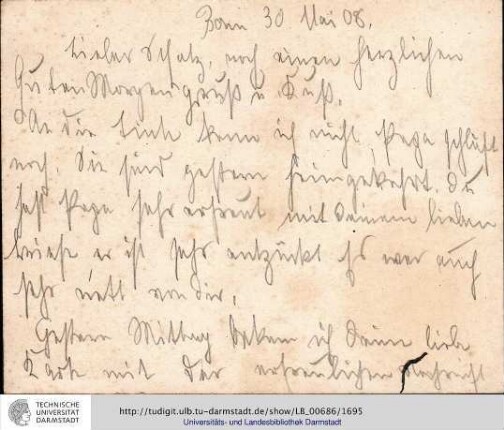 Bonn 30 Mai 08.
Lieber Schatz, noch einen herzlichen
Guten Morgen gruß u Kuß.
An die Tinte kann ich nicht, Papa schläft
noch. Sie sind gestern heimgekehrt. Du
hast Papa sehr erfreut mit Deinem lieben
Briefe er ist sehr entzückt Es war auch
sehr nett von dir.
Gestern Mittag bekam ich Deine liebe
Karte mit der erfreulichen Nachricht
TECHNISCHE
UNIVERSITÄT
DARMSTADT
http://tudigit.ulb.tu-darmstadt.de/show/LB_00686/1695
Universitäts- und Landesbibliothek Darmstadt